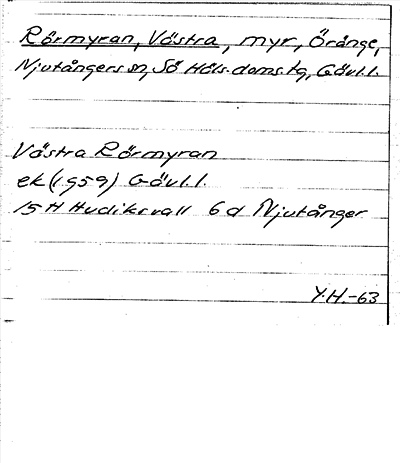 Rörmyran, Västra, myr, Öränge,
Njutångers sn, Sö Häls. doms. tg, Gävl. l.
Västra Rörmyran
ek (1959) Gävl. l.
15 H Hudiksvall 6 d Njutånger
Y.H.-63